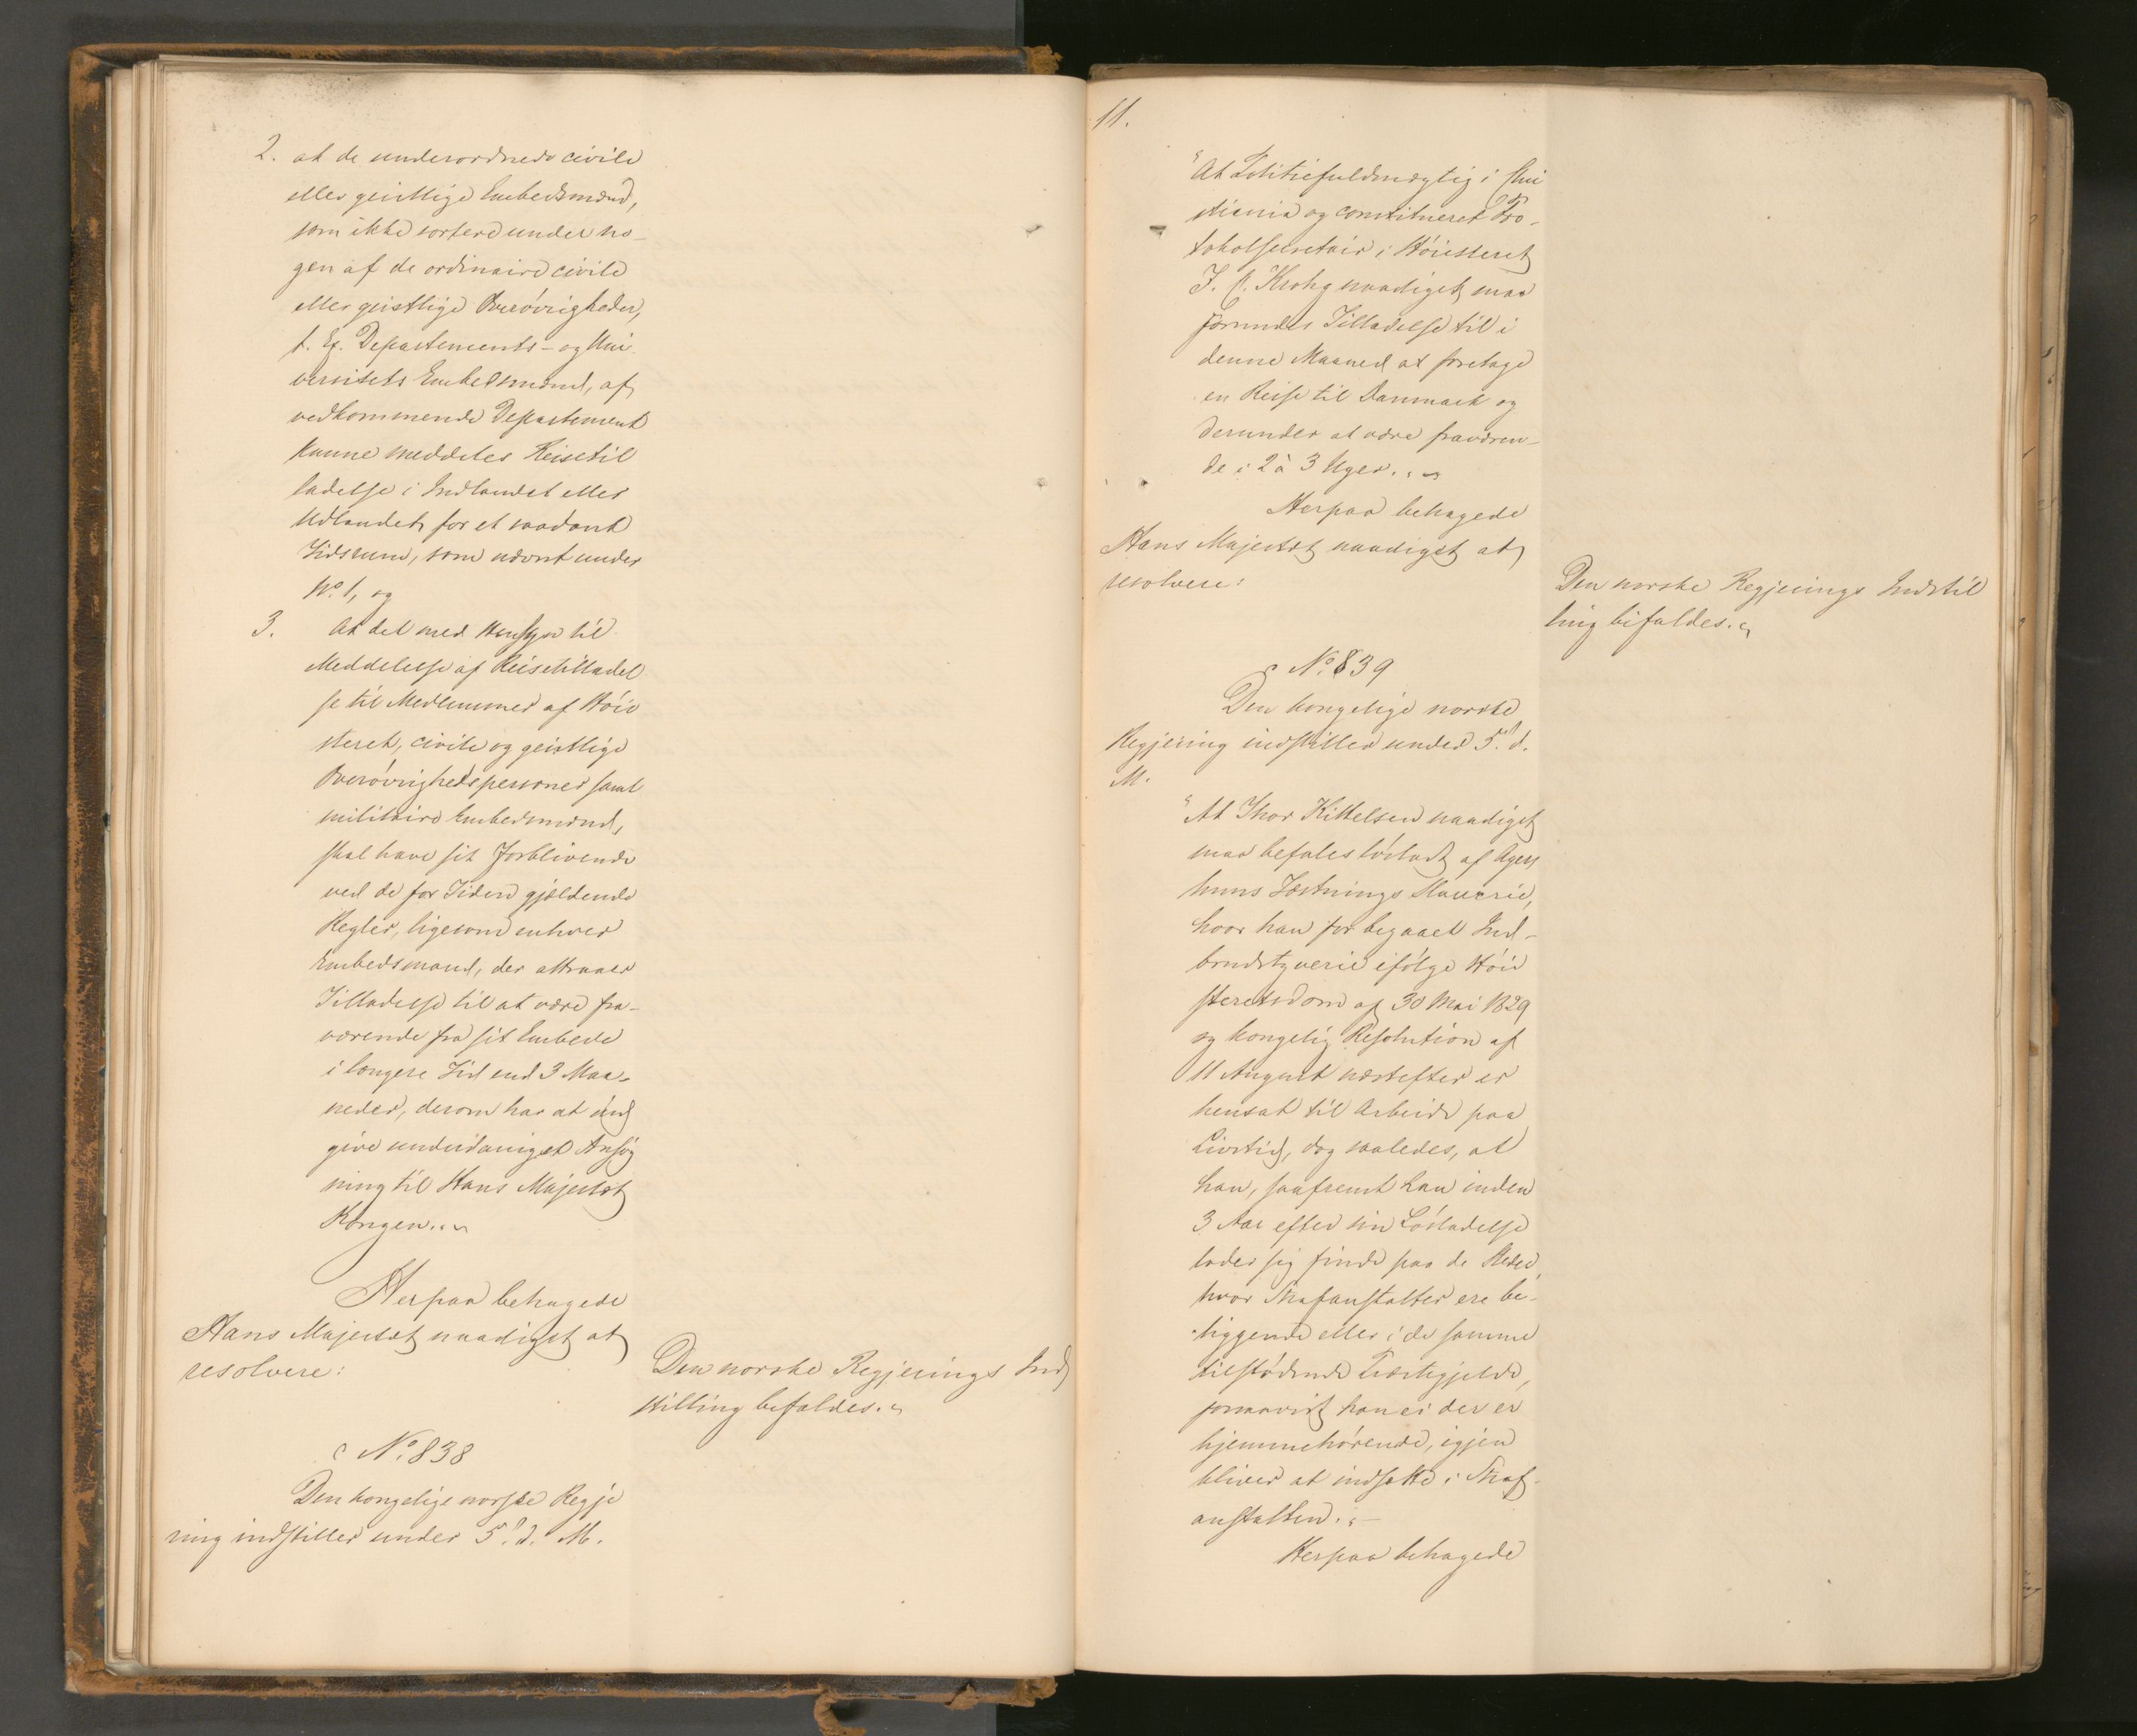 2. at de underordnede civile
eller geistlige Embedsmænd,
som ikke sortere under no-
gen af de ordinaire civile
eller geistlige Overøvrigheder,
f. Ex. Departements- og Uni
versitets Embedsmænd, af
vedkommende Departement
kunne meddeles Reisetil
ladelse i Indlandet eller
Udlandet for et saadant
Tidsrum, som nævnt under
No. 1, og
3. At det med Hensyn til
Meddelelse af Reisetilladel
se til Medlemmer af Höie
steret, civile og geistlige
Overövrighedspersoner samt
militaire Embedsmænd,
skal have sit Forblivende
ved de for Tiden gjældende
Regler, ligesom enhver
Embedsmand, der attraaer
Tilladelse til at være fra-
værende fra sit Embede
i længere Tid end 3 Maa-
neder, derom har at ind
give underdanigst Ansøg
ning til Hans Majestæt
Kongen.
Herpaa behagede
Hans Majestæt naadigst at
resolvere:
Den norske Regjerings Ind
stilling bifaldes.
No. 838
Den kongelige norske Regje
ring indstiller under 5. d. M.
11.
"At Politiefuldmægtig i Chri
stiania og constitueret Pro-
tokolsecretair i Höiesteret
J. C. Krohg naadigst maa
forundes Tilladelse til i
denne Maaned at foretage
en Reise til Danmark og
derunder at være fraværen-
de i 2 à 3 Uger.
Herpaa behagede
Hans Majestæt naadigst at
resolvere:
Den norske Regjerings Indstil
ling bifaldes.
No. 839
Den kongelige norske
Regjering indstiller under 5. d.
M.
"At Thor Kittelsen naadigst
maa befales lösladt af Agers
huus Fæstnings Slaverie,
hvor han for begaaet Ind-
brudstyverie ifölge Höie
steretsdom af 30 Mai 1829
og kongelig Resolution af
11 August næstefter er
hensat til Arbeide paa
Livstid, dog saaledes, at
han, saafremt han inden
3 Aar efter sin Lösladelse
lader sig finde paa de Steder,
hvor Strafanstalter ere be-
liggende eller i de samme
tilstödende Præstegjelde,
forsaavidt han ei der er
hjemmehörende, igjen
bliver at indsætte i Straf-
anstalten.
Herpaa behagede